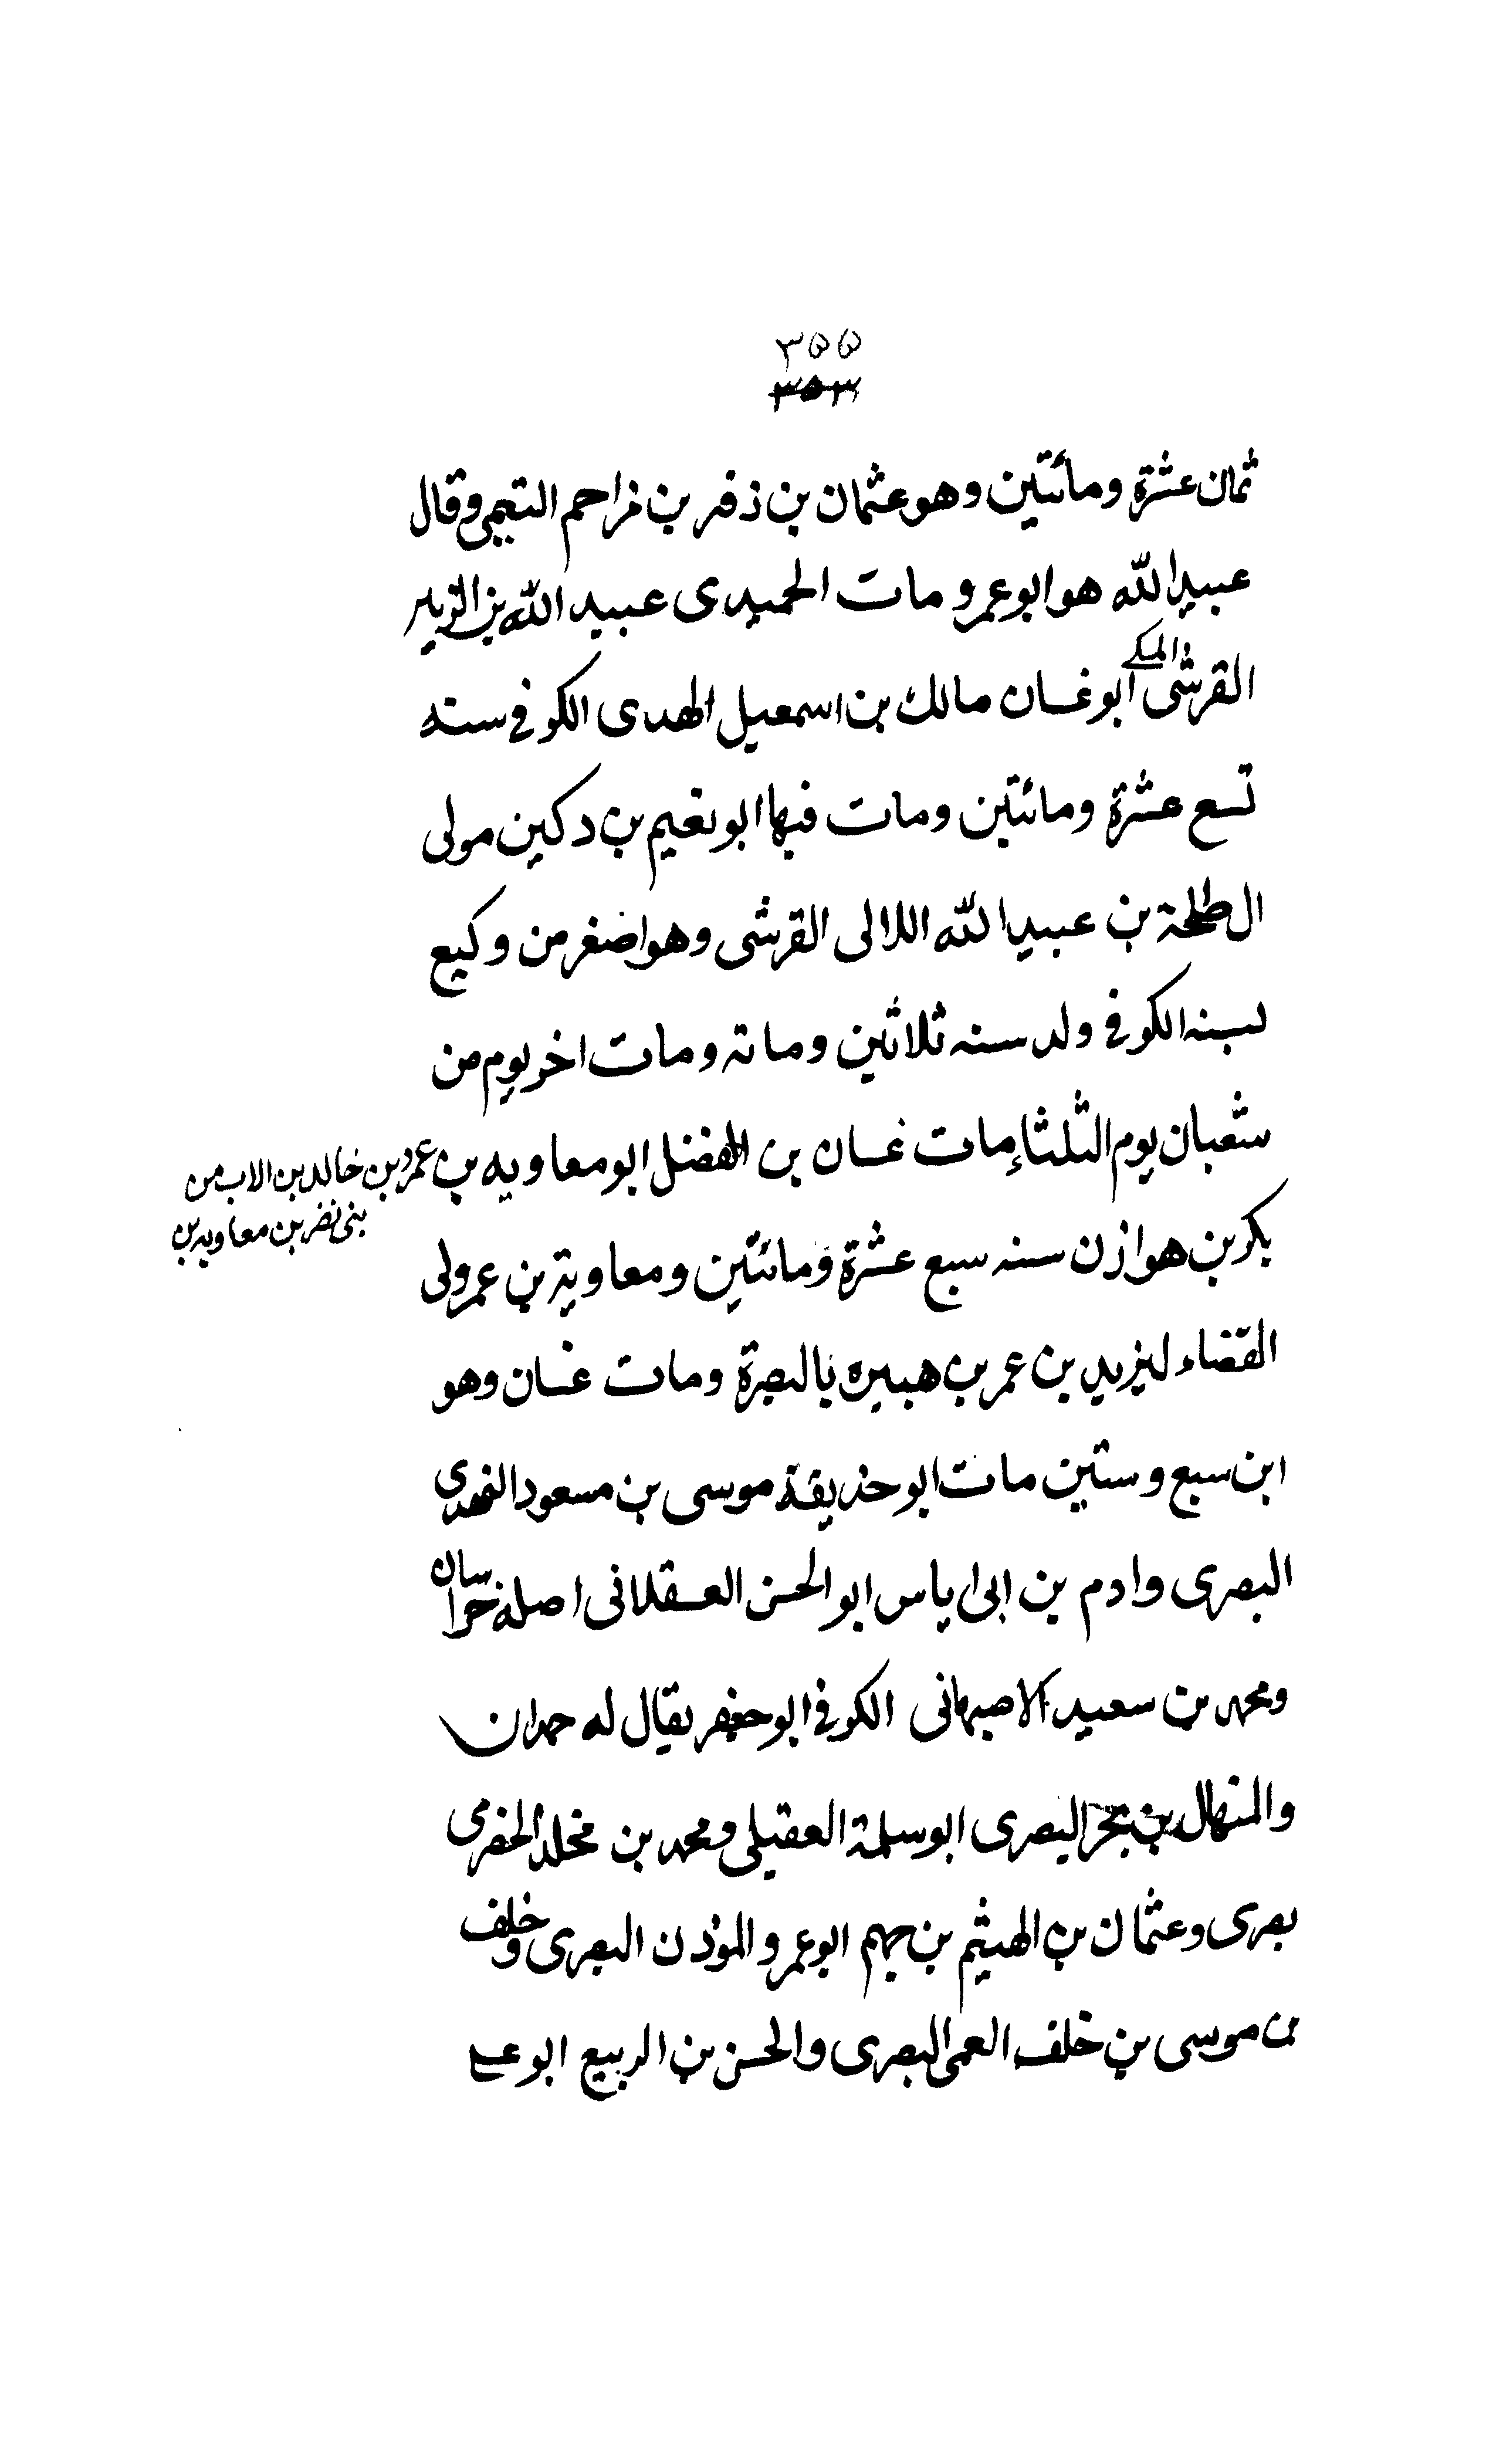 ٣٥٥
٣٥٣
ثمان عشرة ومائتين وهو عثمان بن زفر بن مزاحم التيمي وقال
عبيد الله هو ابو عمرو مات الحميدى عبيد الله بن الزبير
القرشى المكي ابو غسان مالك بن اسمعيل الهدى الكوفي سنه
تسع عشرة ومائتين ومات فيها ابو نعيم بن دكين مولى
ال طلحة بن عبيد الله اللالى القرشى وهو اصغر من وكيع
لسنه الكوفي ولد سنه ثلاثين ومائه ومات اخر يوم من
شعبان يوم الثلثاء مات غسان بن المفضل ابو معاويه بن عمرو بن خالد بن الاب من
بنى نضر بن معاويه بن
بكر بن هوازن سنه سبع عشرة ومائتين ومعاوية بن عمرو لى
القضاء ليزيد بن عمر بن هبيره بالبصرة ومات غسان وهو
ابن سبع وستين مات ابو حذيقة موسى بن مسعود النهدى
البصرى وادم بن ابى اياس ابو الحسن العسقلانى اصله خراسان
ومحمد بن سعيد الاصبهانى الكوفي ابو جعفر يقال له حمدان
والمنهال بن بحر البصرى ابو سلمة العقيلى ومحمد بن مخلد الحضرمى
بصرى وعثمان بن الهيثم بن جهم ابو عمرو المؤذن البصرى وخلف
بن موسى بن خلف العمى البصرى والحسن بن الربيع ابو على